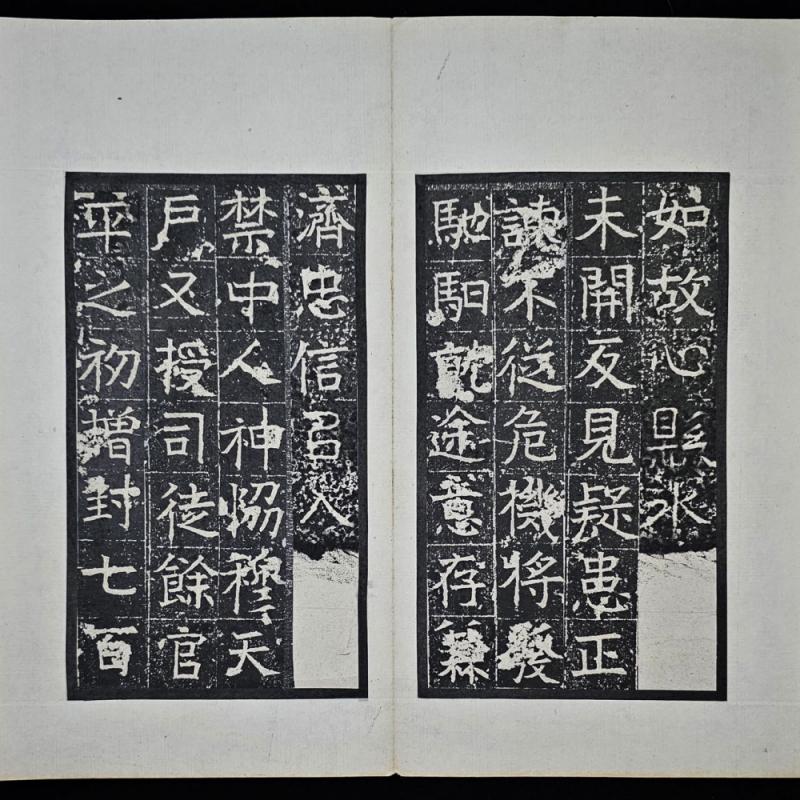 如故心懸水
未開反見疑患正
諫不從危機將發
馳馹就途意存兼
濟忠信召入
禁中人神恊穆天
戶又授司徒餘官
平之初增封七百